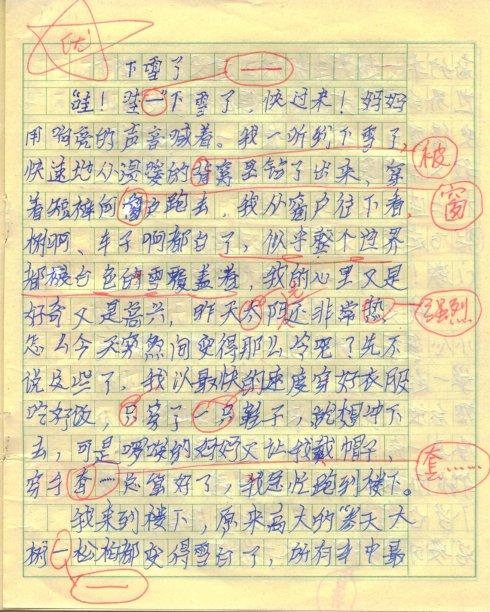 优
下雪了 ——
“哇！哇——下雪了，快过来！妈妈
用响亮的声音喊着。我一听到下雪了，
快速地从温暖的被窝里钻了出来，穿 被
着短裤向窗户跑去，我从窗户往下看， 窗
树啊、车子啊都白了，似乎整个世界
都被白色的雪覆盖着，我的心里又是
好奇又是高兴，昨天太阳还非常热 强烈
怎么今天突然间变得那么冷呢？先不
说这些了，我以最快的速度穿好衣服
吃好饭，只穿了一只鞋子，就想冲下
去，可是啰嗦的妈妈又让我戴帽子，
穿手套……总算好了，我急忙跑到楼下。 套……
我来到楼下，原来高大的参天大
树——松柏都变得雪白了，所有车中最
——